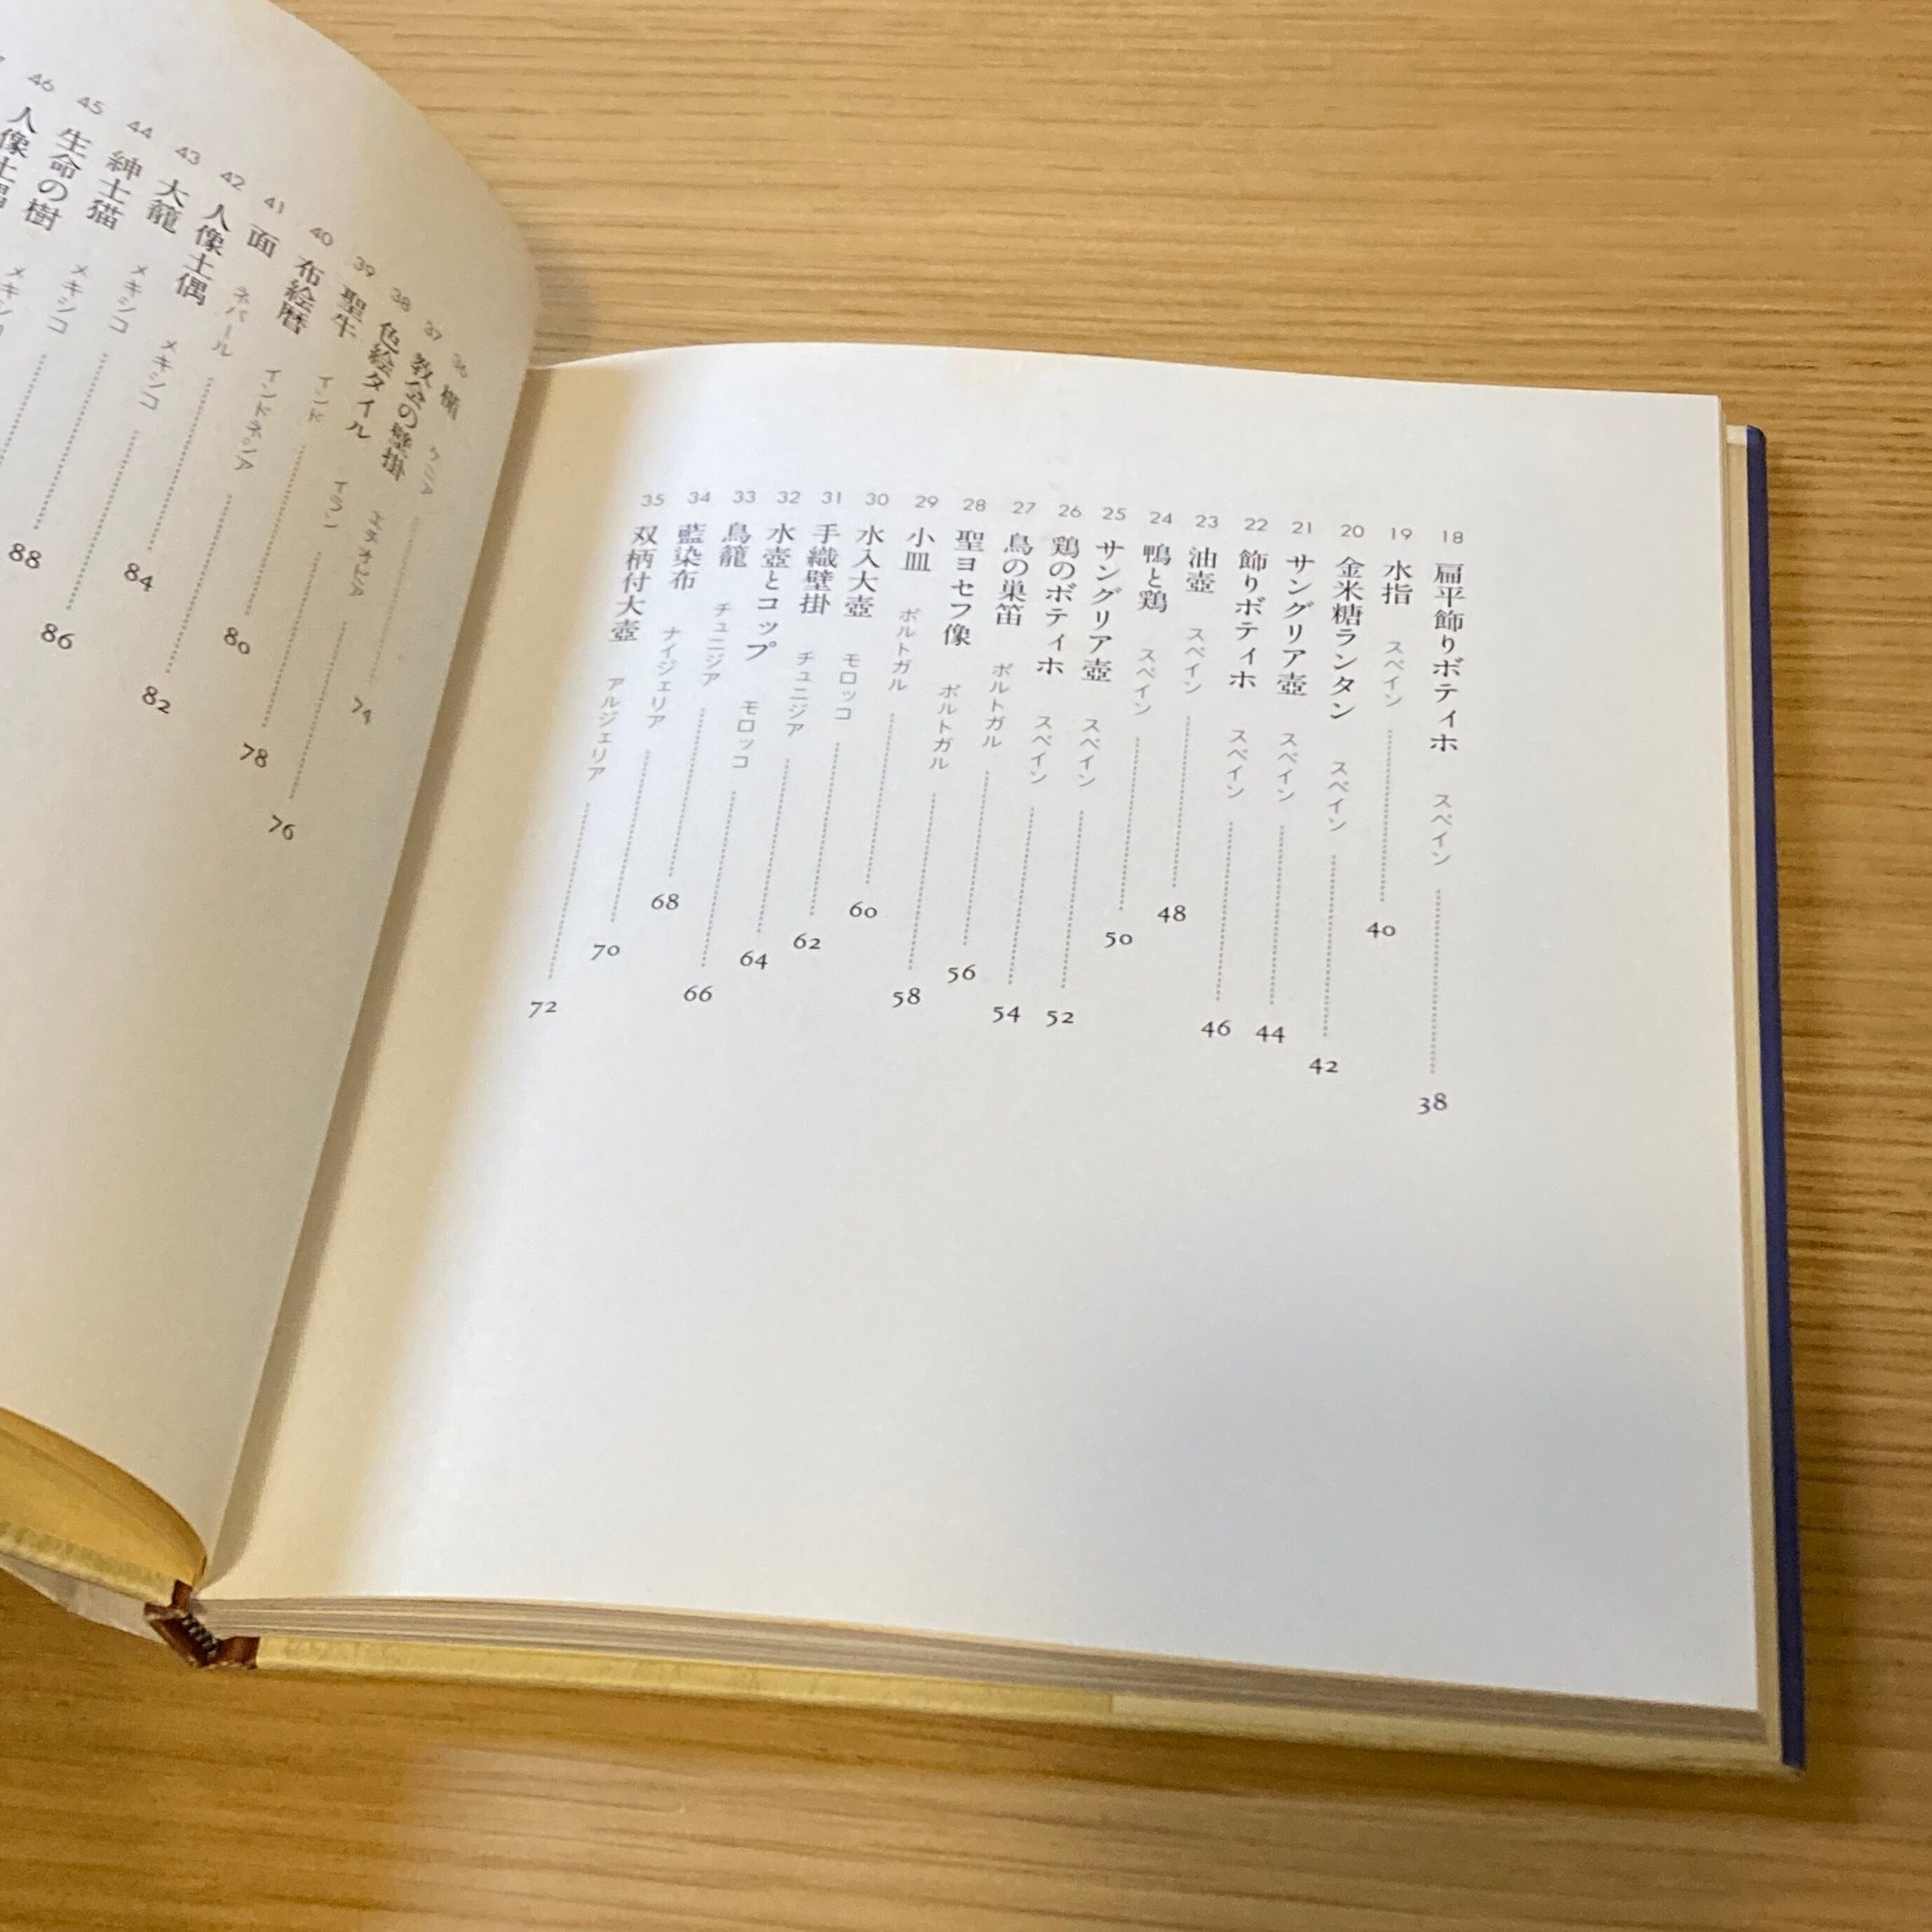 18 扁平飾りボティホ スペイン 38
19 水指 スペイン 40
20 金米糖ランタン スペイン 42
21 サングリア壺 スペイン 44
22 飾りボティホ スペイン 46
23 油壺 スペイン 48
24 鴨と鶏 スペイン 50
25 サングリア壺 スペイン 52
26 鶏のボティホ スペイン 54
27 鳥の巣笛 ポルトガル 56
28 聖ヨセフ像 ポルトガル 58
29 小皿 ポルトガル 60
30 水入大壺 モロッコ 62
31 手織壁掛 チュニジア 64
32 水壺とコップ モロッコ 66
33 鳥籠 チュニジア 68
34 藍染布 ナイジェリア 70
35 双柄付大壺 アルジェリア 72
36 楯 ケニア 74
37 教会の壁掛 エチオピア 76
38 色絵タイル イラン 78
39 聖牛 インド 80
40 布絵暦 インドネシア 82
41 面 ネパール 84
42 人像土偶 メキシコ 86
43 大籠 メキシコ 88
44 紳士猫 メキシコ
45 生命の樹 メキシコ
46 人像土偶